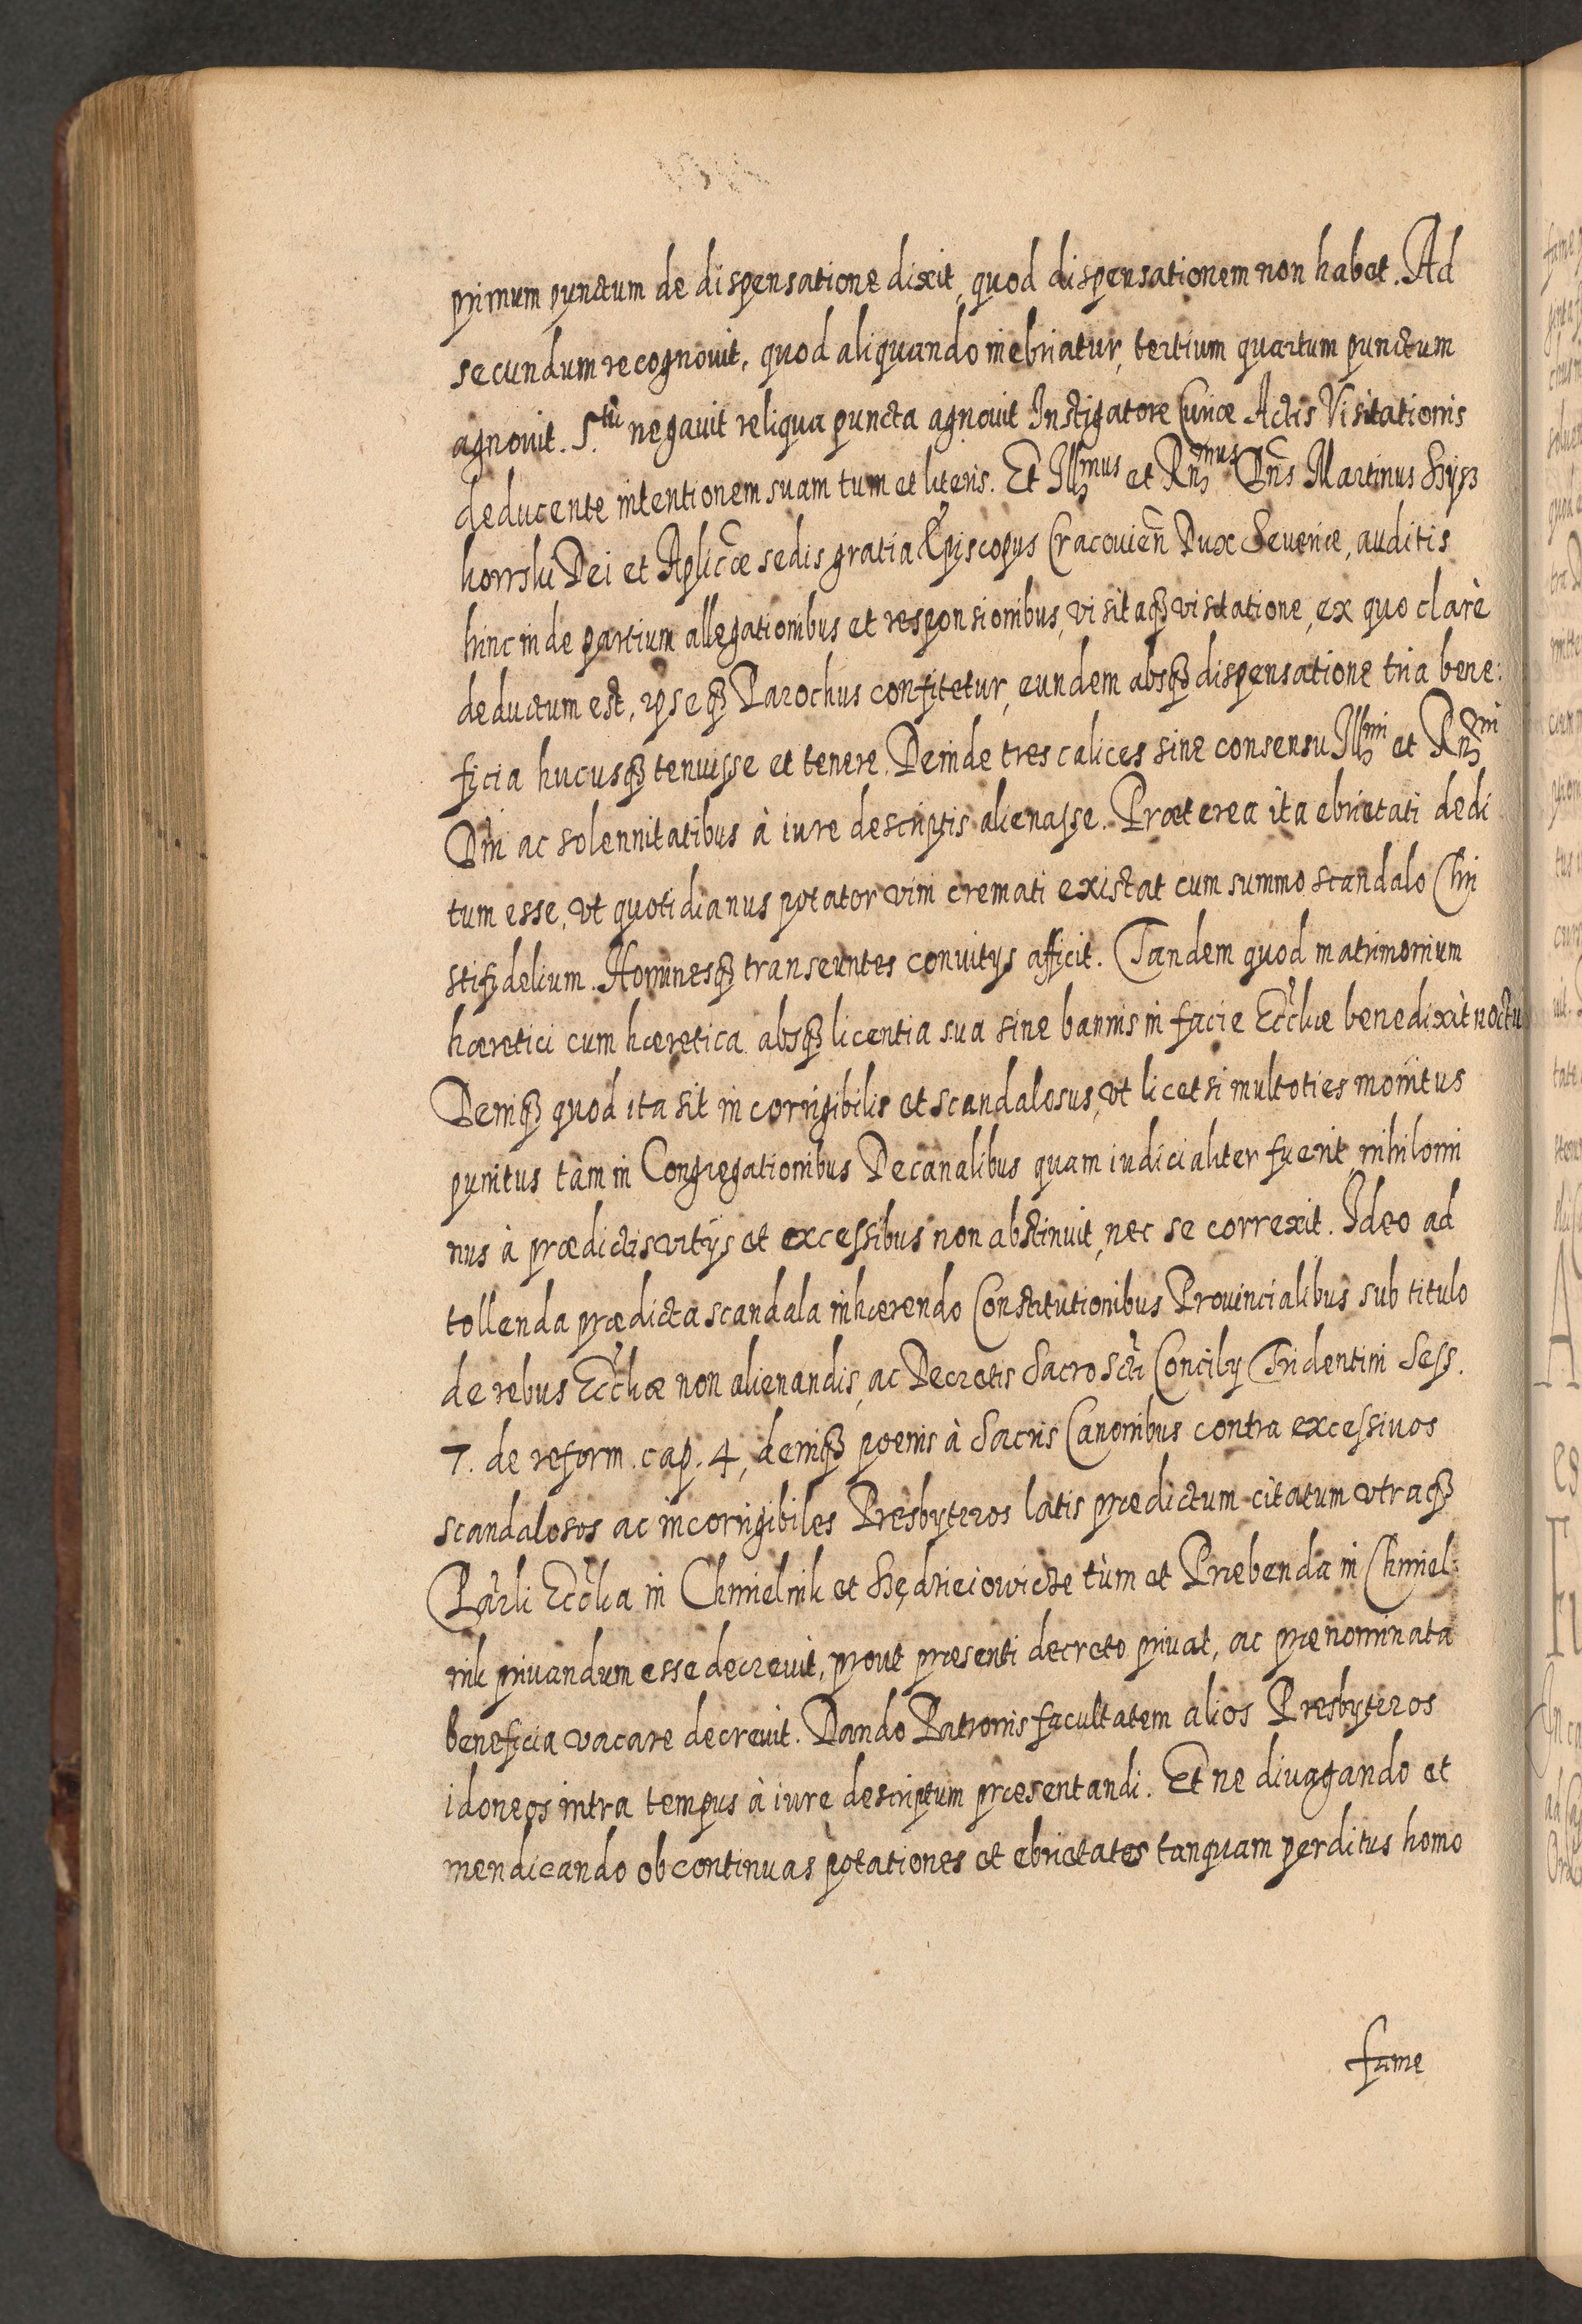 primum punctum de dispensatione dixit, quod dispensationem non habet. Ad
secundum recognovit, quod aliquando inebriatur, tertium quartum punctum
agnovit. 5.tũ negavit reliqua puncta agnovit Instigatore Curiæ Actis Visitationis
deducente intentionem suam tum et literis. Et Illmus et Rñmus Dñs Martinus Szysz
kowski Dei et Aplicæ sedis gratia Episcopus Cracovieñ Dux Severiæ, auditis
hinc inde partium allegationibus et responsionibus, visitaqʒ visitatione, ex quo clarè
deductum est, ipseqʒ Parochus confitetur, eundem absqʒ dispensatione tria bene:
ficia hucusqʒ tenuisse et tenere. Deinde tres calices sine consensu Illmi et Rñmi
Dñi ac solennitatibus à iure descriptis alienasse. Præterea ita ebrietati dedi
tum esse, vt quotidianus potator vini cremati existat cum summo scandalo Chri
stifidelium. Hominesqʒ transeuntes convitijs afficit. Tandem quod matrimonium
hæretici cum hæretica absqʒ licentia sua sine bannis in facie Ecclĩæ benedixit noctu
Deniqʒ quod ita sit incorrigibilis et scandalosus, vt licet si multoties monitus
punitus tàm in Congregationibus Decanalibus quam iudicialiter fuerit, nihilomi
nus à prædictis vitijs et excessibus non abstinuit, nec se correxit. Ideo ad
tollenda prædicta scandala inhærendo Constitutionibus Provincialibus sub titulo
de rebus Ecclĩæ non alienandis, ac Decretis Sacro Sc̃ti Concilij Tridentini Sess.
7. de reform. cap. 4, deniqʒ poenis à Sacris Canonibus contra excessivos
scandalosos ac incorrigibiles Presbyteros latis prædictum citatum vtraqʒ
Parl̃i Ecclĩa in Chmielnik et Sędzieiowicze tùm et Præbenda in Chmiel:
nik privandum esse decrevit, prout præsenti decreto privat, ac prænominata
beneficia vacare decrevit. Dando Patronis facultatem alios Presbyteros
idoneos intra tempus à iure descriptum præsentandi. Et ne divagando et
mendicando ob continuas potationes et ebrietates tanquam perditus homo
fame